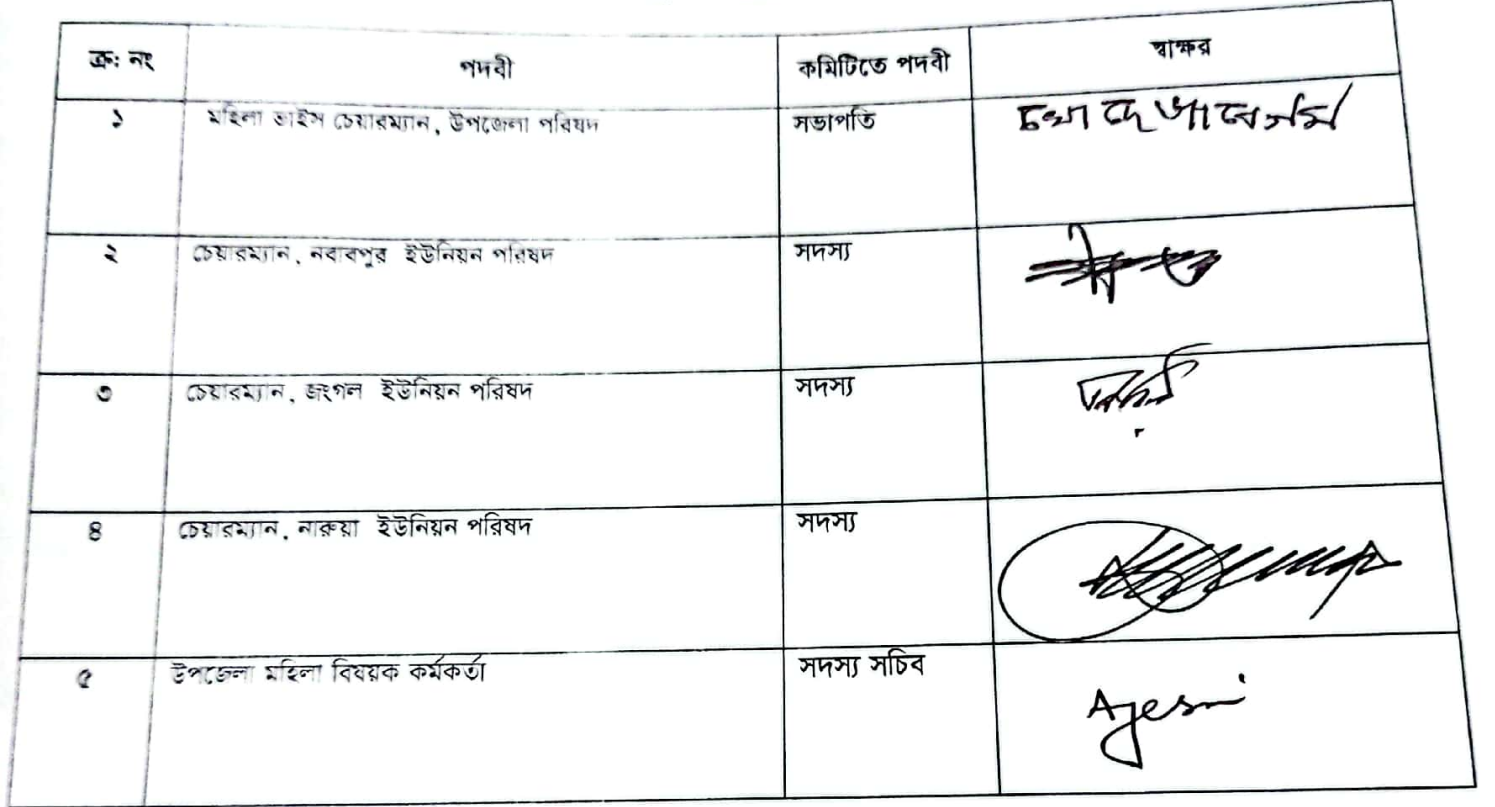 ক্রঃ নং পদবী কমিটিতে পদবী স্বাক্ষর
১ মহিলা ভাইস চেয়ারম্যান, উপজেলা পরিষদ সভাপতি
২ চেয়ারম্যান, নবাবপুর ইউনিয়ন পরিষদ সদস্য
৩ চেয়ারম্যান, জংগল ইউনিয়ন পরিষদ সদস্য
৪ চেয়ারম্যান, নারুয়া ইউনিয়ন পরিষদ সদস্য
৫ উপজেলা মহিলা বিষয়ক কর্মকর্তা সদস্য সচিব